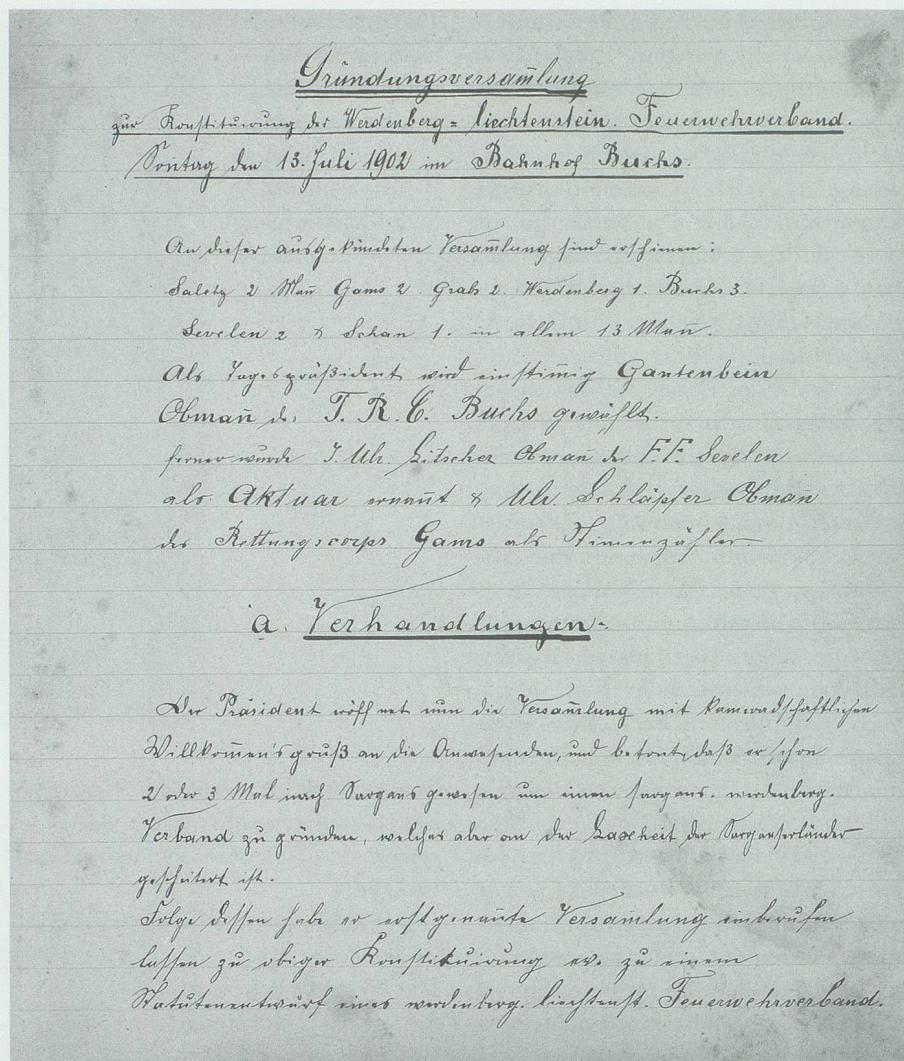 Gründungsversam̅lung
zur Konstituirung des Werdenberg = liechtenstein. Feuerwehrverband.
Son̅tag den 13. Juli 1902 im Bahnhof Buchs.
An dieser ausgekündeten Versam̅lung sind erschienen:
Saletz 2 Man̅ Gams 2. Grabs 2. Werdenberg 1. Buchs 3.
Sevelen 2 & Schan 1. in allem 13 Man̅.
Als Tagespräsident wird einstim̅ig Gantenbein
Obman̅ d. T. R. C. Buchs gewählt.
ferner wurde J. Ulr. Litscher Obman̅ der F.F. Sevelen
als Aktuar ernan̅t & Ulr. Schläpfer Obman̅
des Rettungscorps Gams als Stimenzähler.
a. Verhandlungen.
Der Präsident eröffnet nun die Versam̅lung mit kameradschaftlichen
Willkom̅en'sgruß an die Anwesenden, und betont, daß er schon
2 oder 3 Mal nach Sargans gewesen um einen sargans. werdenberg.
Verband zu gründen, welches aber an der Laxheit der Sarganserländer
gescheitert ist.
Folge dessen habe er erstgenan̅te Versam̅lung einberufen
lassen zu obiger Konstituirung ev. zu einem
Statutenentwurf eines werdenberg. liechtenst. Feuerwehrverband.